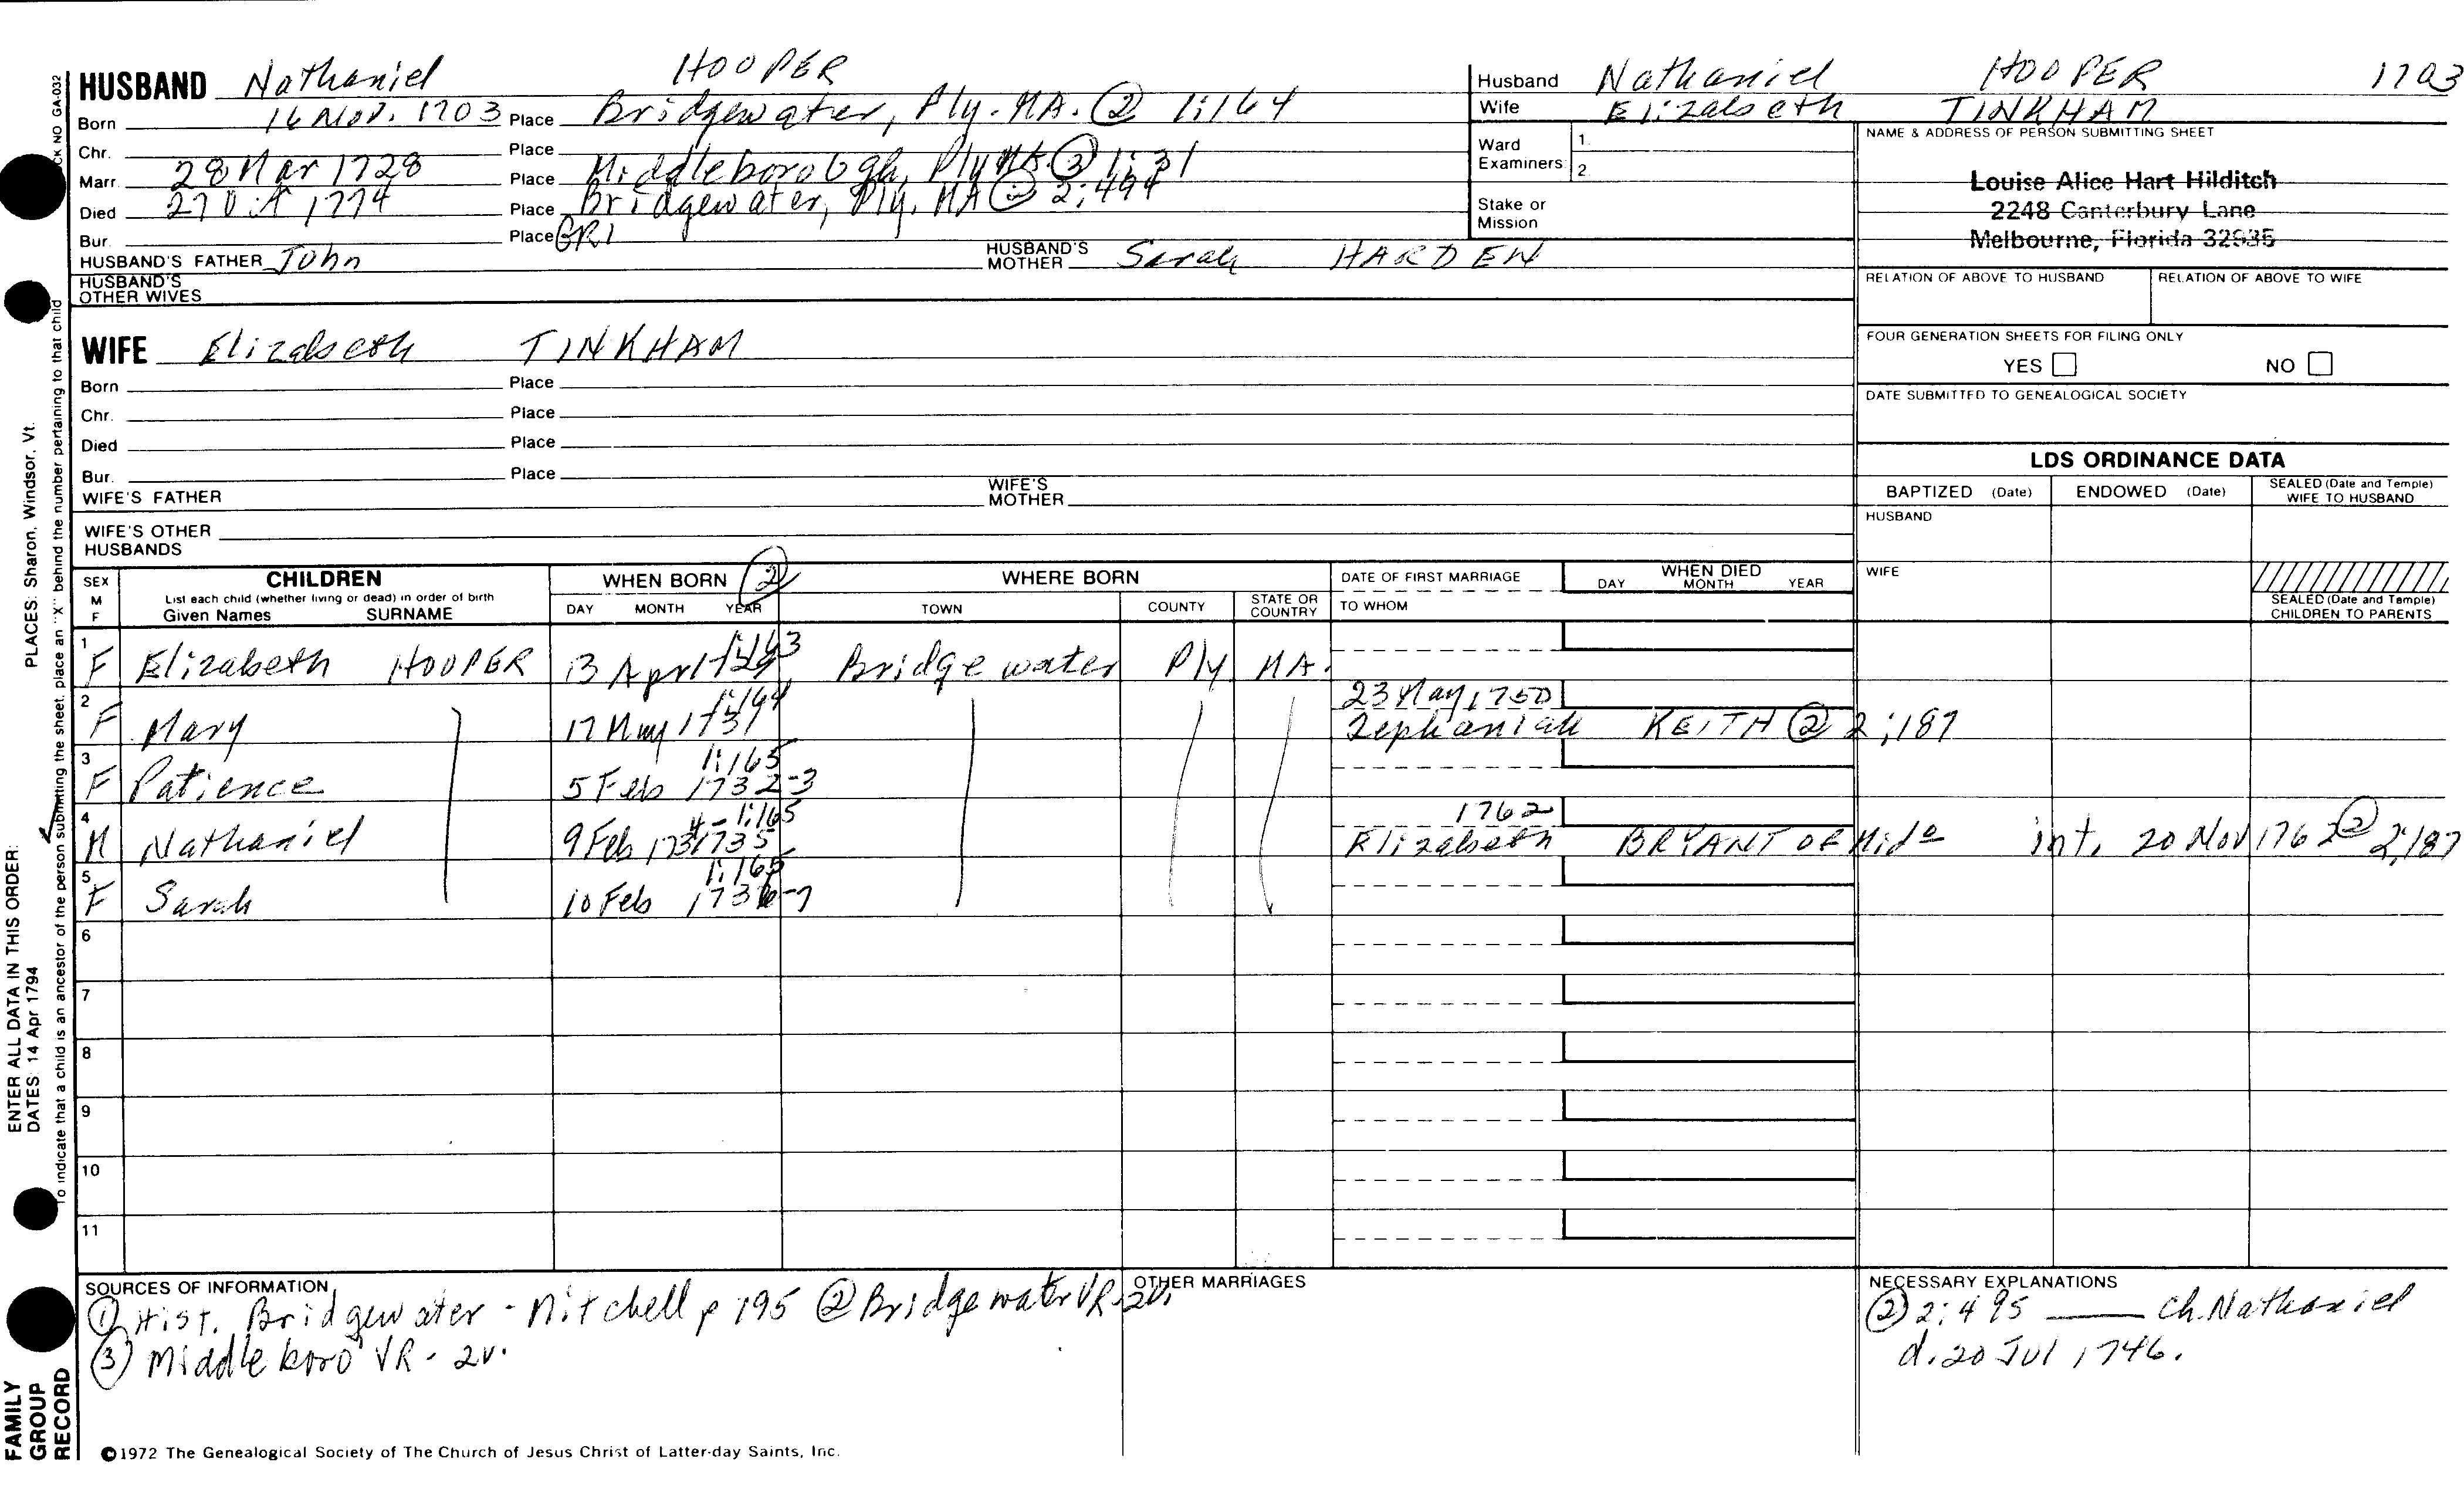 HUSBAND Nathaniel HOOPER
Born 16 Nov. 1703 Place Bridgewater, Ply. MA. ② 1:164
Chr. Place
Marr. 28 Mar 1728 Place Middleborough, Ply MA. ③ 1:31
Died 1774 Place Bridgewater, Ply. MA ② 2:494
Bur. Place GR1
HUSBAND'S FATHER John HUSBAND'S MOTHER Sarah HARDEN
HUSBAND'S OTHER WIVES
Husband Nathaniel HOOPER 1703
Wife Elizabeth TINKHAM
Ward Examiners: 1. 2.
Stake or Mission
NAME & ADDRESS OF PERSON SUBMITTING SHEET
Louise Alice Hart Hilditch
2248 Canterbury Lane
Melbourne, Florida 32935
RELATION OF ABOVE TO HUSBAND RELATION OF ABOVE TO WIFE
FOUR GENERATION SHEETS FOR FILING ONLY
YES NO
DATE SUBMITTED TO GENEALOGICAL SOCIETY
WIFE Elizabeth TINKHAM
Born Place
Chr. Place
Died Place
Bur. Place
WIFE'S FATHER WIFE'S MOTHER
WIFE'S OTHER HUSBANDS
LDS ORDINANCE DATA
BAPTIZED (Date) ENDOWED (Date) SEALED (Date and Temple) WIFE TO HUSBAND
HUSBAND
WIFE
SEALED (Date and Temple) CHILDREN TO PARENTS
SEX M F
CHILDREN
List each child (whether living or dead) in order of birth
Given Names SURNAME
WHEN BORN ②
DAY MONTH YEAR
WHERE BORN
TOWN COUNTY STATE OR COUNTRY
DATE OF FIRST MARRIAGE
TO WHOM
WHEN DIED
DAY MONTH YEAR
1 F Elizabeth HOOPER 13 Apr 1:163 Bridgewater Ply MA.
2 F Mary 17 May 1731 1:164 23 May 1750 Zephaniah KEITH ② 2:187
3 F Patience 5 Feb 1732-3 1:165
4 M Nathaniel 9 Feb 1735 1:165 1762 Elizabeth BRYANT OF Mido int. 20 Nov 1762 ② 2:187
5 F Sarah 10 Feb 1736-7 1:165
6
7
8
9
10
11
SOURCES OF INFORMATION
① Hist. Bridgewater - Mitchell p 195 ② Bridgewater VR-2v.
③ Middleboro VR - 2v.
OTHER MARRIAGES
NECESSARY EXPLANATIONS
② 2:495 ch. Nathaniel
d. 20 Jul 1746.
©1972 The Genealogical Society of The Church of Jesus Christ of Latter-day Saints, Inc.
FAMILY GROUP RECORD
ENTER ALL DATA IN THIS ORDER:
DATES: 14 Apr 1794 PLACES: Sharon, Windsor, Vt.
To indicate that a child is an ancestor of the person submitting the sheet, place an "X" behind the number pertaining to that child
NO GA-032